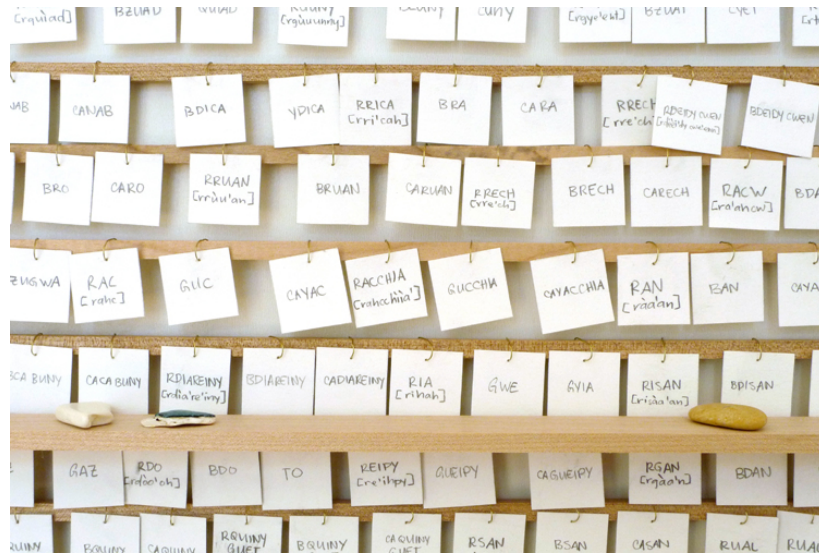 [rguiad]
BZUAD
QUIAD
[rgùuunny]
CUNY
[rgye'eht]
BZUAT
CANAB
BDICA
YDICA
RRICA
[rri'cah]
BRA
CARA
RRECH
[rre'ch]
RDEIDYCWEN
BDEIDYCWEN
BRO
CARO
RRUAN
[rrùu'an]
BRUAN
CARUAN
RRECH
[rre'ch]
BRECH
CARECH
RACW
[ra'ahcw]
ZUGWA
RAL
GUC
CAYAC
RACCHIA
[rahcchìia']
GUCCHIA
CAYACCHIA
RAN
[ràa'an]
BAN
CACA BUNY
RDIAREINY
[rdia're'iny]
BDIAREINY
CADIAREINY
RIA
[rihah]
GWE
GYIA
RISAN
[risàa'an]
BDISAN
GAZ
RDO
BDO
TO
REIPY
[re'ihpy]
GUEIPY
CAGUEIPY
RGAN
[rgàa'n]
BDAN
BQUINY
CAQUINY
RQUINY
GUET
BQUINY
CAQUINY
GUET
RSAN
BSAN
CASAN
RUAL